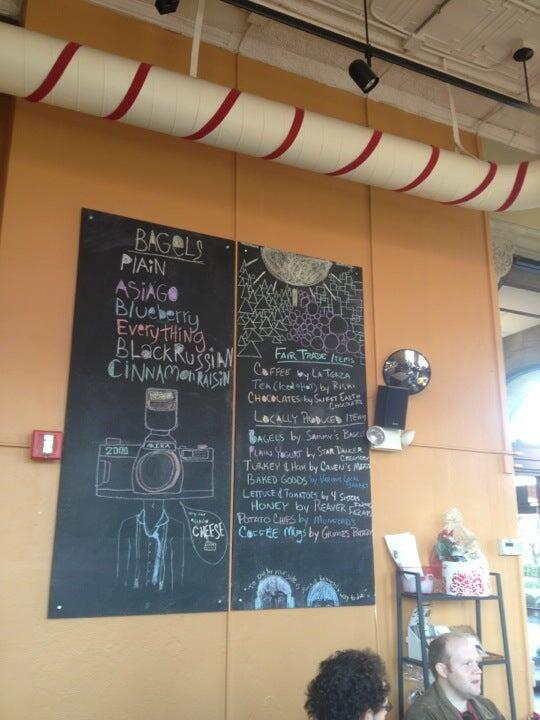 BAGELS
PLAIN
ASIAGO
Blueberry
EVERYTHING
BLACK RUSSIAN
CINNAMON RAISIN
2000
CHEESE
FAIR TRADE ITEMS
COFFEE by LA TERZA
TEA (ICED & HOT) by RISHI
CHOCOLATES by SWEET EARTH
CHOCOLATES
LOCALLY PRODUCED ITEMS
BAGELS by SAMMY'S BAGELS
PLAIN YOGURT by STAR
CREAMERY
TURKEY & HAM by
BAKED GOODS by VARIOUS LOCAL
BAKERS
LETTUCE & TOMATOES by 4 SISTERS
HONEY by
POTATO CHIPS by MUMFORD'S
COFFEE MUGS by GRIMES POTTERY